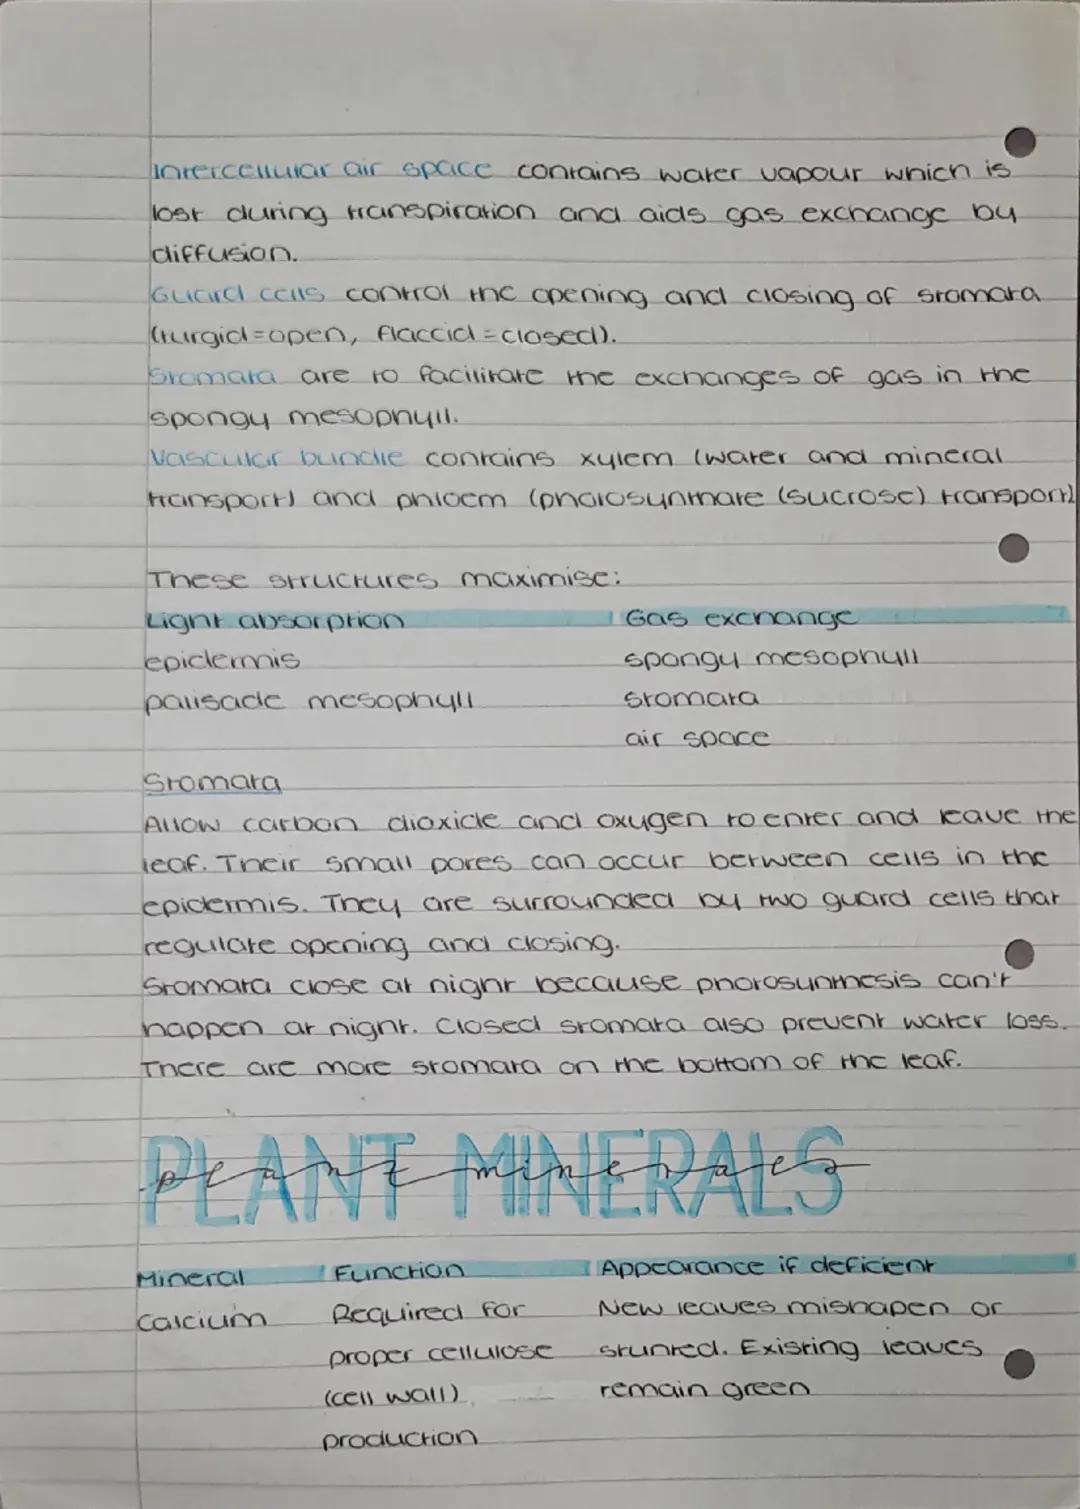 Intercellular air space contains water vapour which is
lost during transpiration and aids gas exchange by
diffusion.
Guard cells control the opening and closing of stomata
(turgid=open, flaccid=closed).
Stomata are to facilitate the exchanges of gas in the
spongy mesophyll.
Vascular bundle contains xylem (water and mineral
transport) and phloem (photosynthate (sucrose) transport)
These structures maximise:
Light absorption Gas exchange
epidermis spongy mesophyll
palisade mesophyll stomata
air space
Stomata
Allow carbon dioxide and oxygen to enter and leave the
leaf. Their small pores can occur between cells in the
epidermis. They are surrounded by two guard cells that
regulate opening and closing.
Stomata close at night because photosynthesis can't
happen at night. Closed stomata also prevent water loss.
There are more stomata on the bottom of the leaf.
PLANT MINERALS
plant minerals
Mineral Function Appearance if deficient
Calcium Required for New leaves mishapen or
proper cellulose stunted. Existing leaves
(cell wall) remain green
production